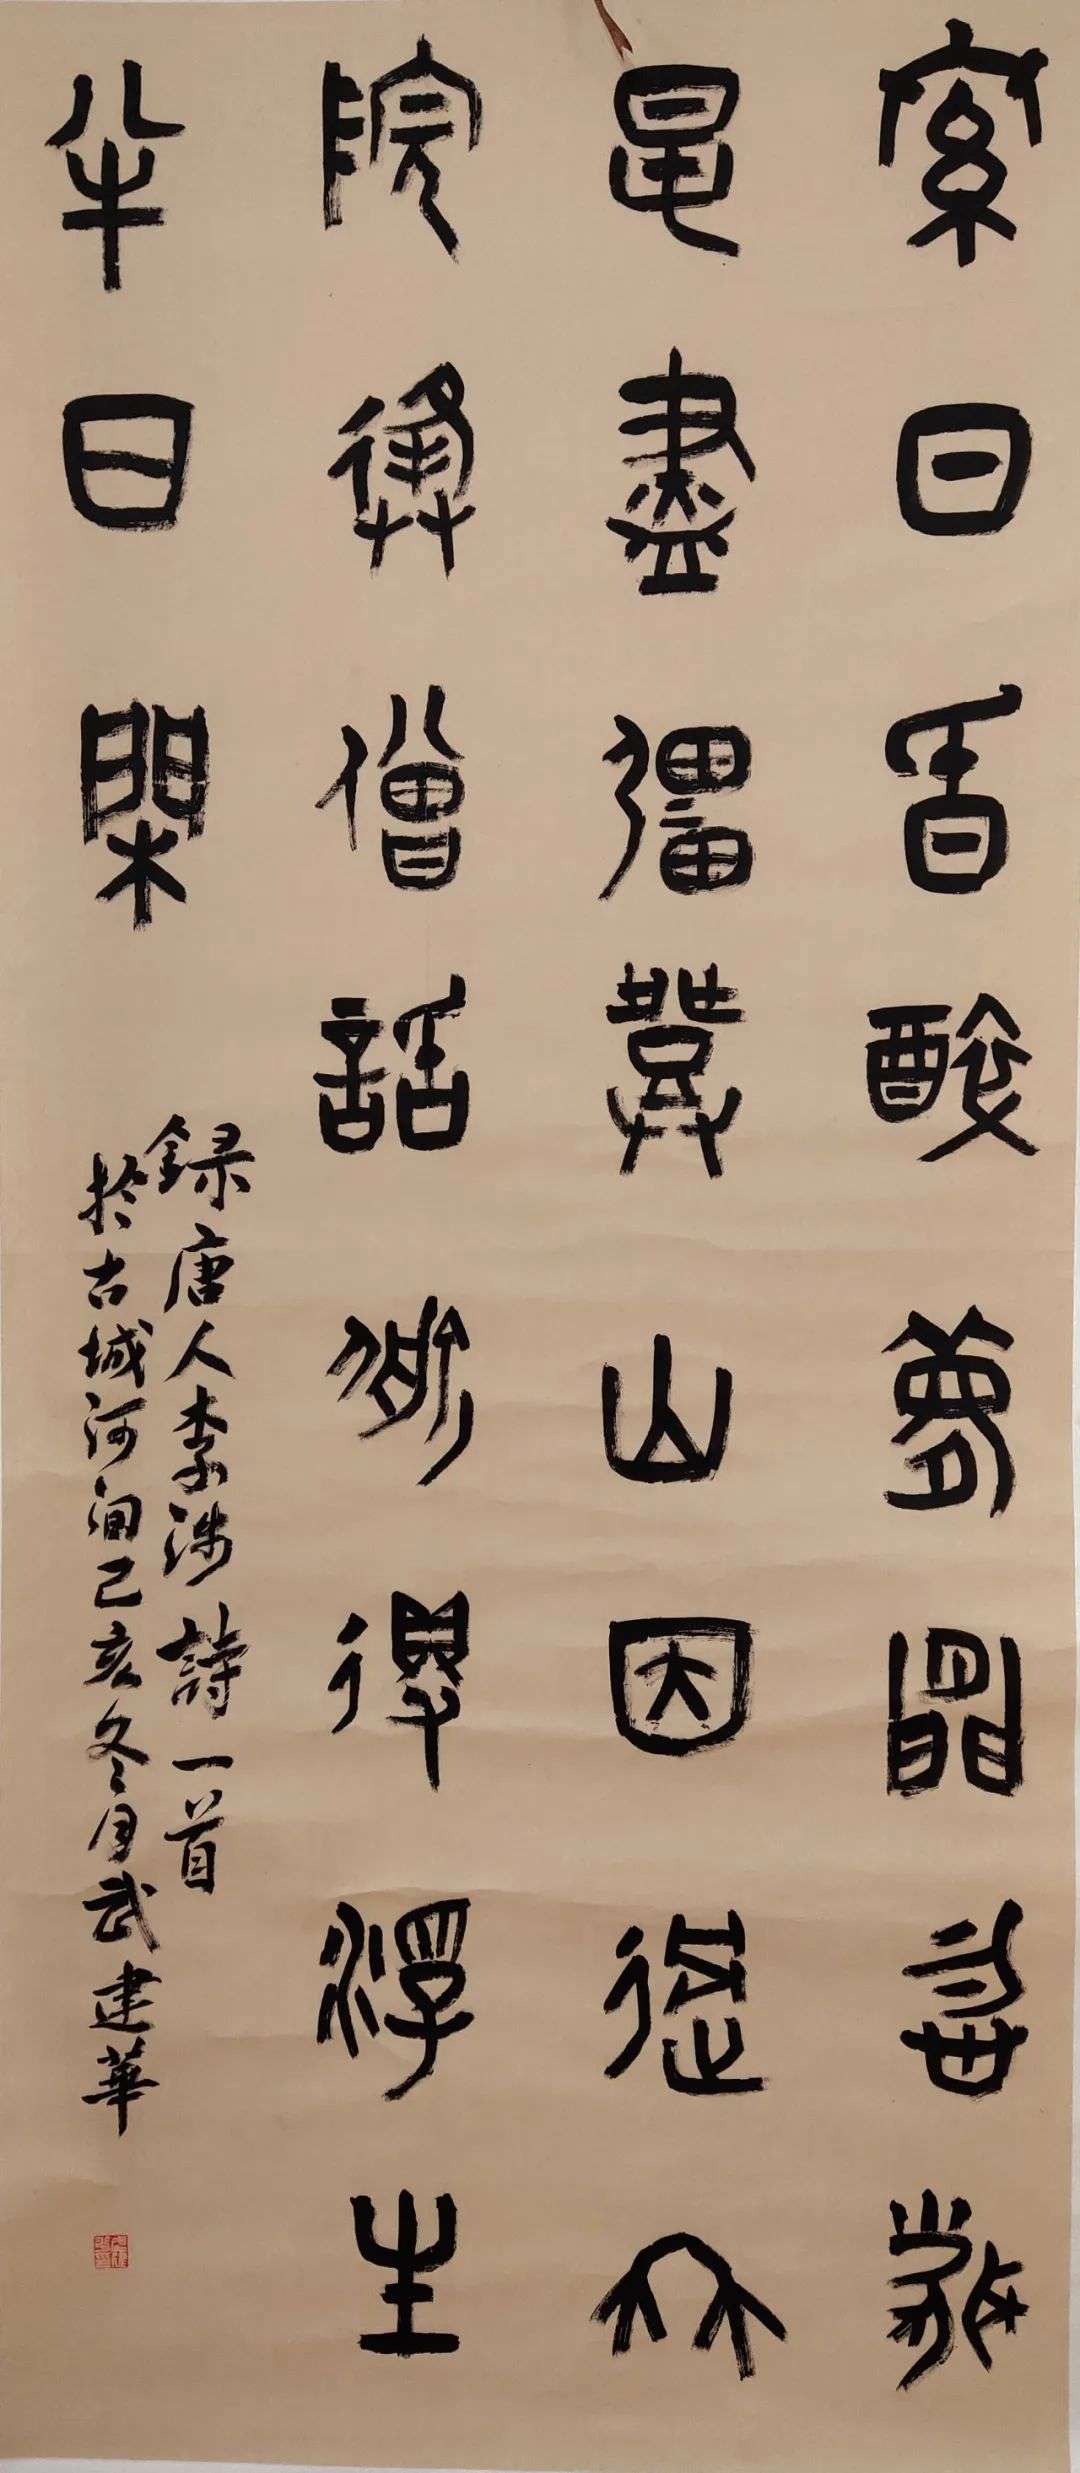 終日昏醉夢間忽聞
春盡強登山因過竹
院逢僧話偷得浮生
半日閑
錄唐人李涉詩一首
於古城河间己亥冬月武建華